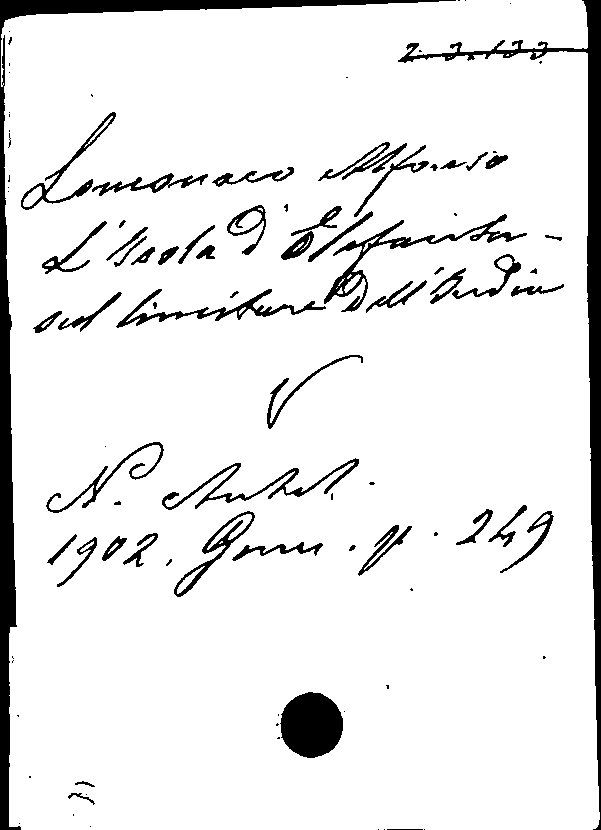 2.3.133
Lomonaco Alfonso
L'Isola d'Elefanta -
sul limitare dell'India
V
N. Antol.
1902. Genn. p. 249